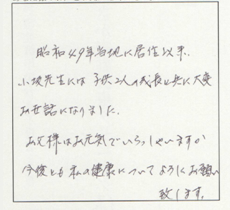 昭和49年当地に居住以来、
小坂先生には子供2人の成長と共に大変
お世話になりました。
お父様はお元気でいらっしゃいますか
今後とも私の健康についてよろしくお願い
致します。